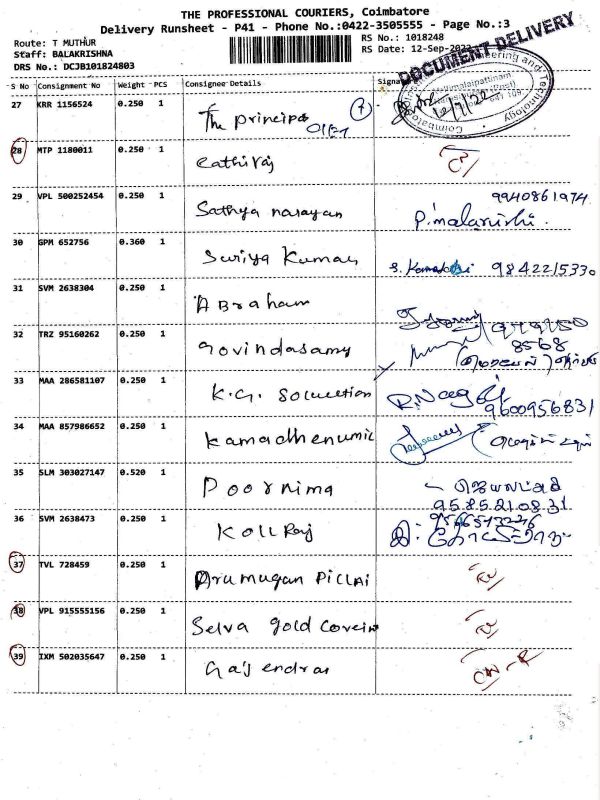 THE PROFESSIONAL COURIERS, Coimbatore
Delivery Runsheet - P41 - Phone No.:0422-3505555 - Page No.:3
Route: T MUTHUR
Staff: BALAKRISHNA
DRS No.: DCJB101824803
RS No.: 1018248
RS Date: 12-Sep-2022
DOCUMENT DELIVERY
S No Consignment No Weight PCS Consignee Details Signa
27 KRR 1156524 0.250 1 The principal
12/9/22
28 MTP 1180011 0.250 1 Cathiraj
29 VPL 500252454 0.250 1 Sathya narayan
9940861974
P. malarvishi.
30 GPM 652756 0.360 1 Suriya Kumar 9842215330
31 SVM 2638304 0.250 1 ABraham
32 TRZ 95160262 0.250 1 Govindasamy
8568
33 MAA 286581107 0.250 1 K.G. Solluction
9600956831
34 MAA 857986652 0.250 1 Kamadhenumic
35 SLM 303027147 0.520 1 Poornima
9585210831
36 SVM 2638473 0.250 1 Koll Raj
37 TVL 728459 0.250 1 Arumugan Pillai
38 VPL 915555156 0.250 1 Selva gold covein
39 IXM 502035647 0.250 1 Gajendran